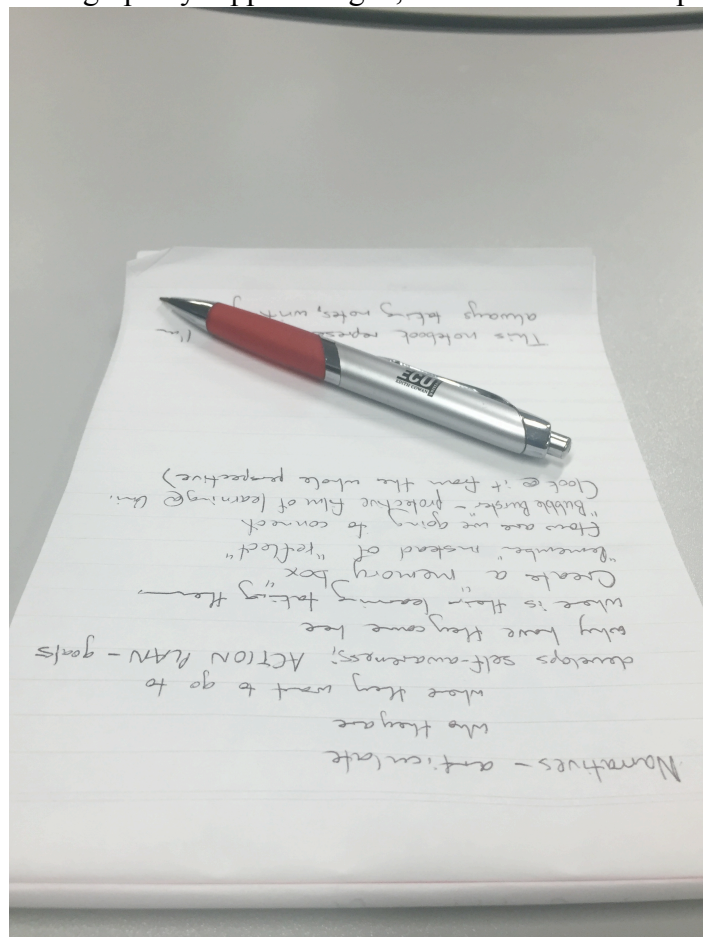 Narratives – articulate
who they are
where they want to go to
develops self-awareness; ACTION PLAN – goals
why have they come
where is their learning taking them
Create a "memory box"
"remember" instead of "reflect"
How are we going to connect
"Bubble Burster" – protective film of learning @ Uni.
(look @ it from the whole perspective)
This notebook I'm
always taking notes,
ECU
EDITH COWAN